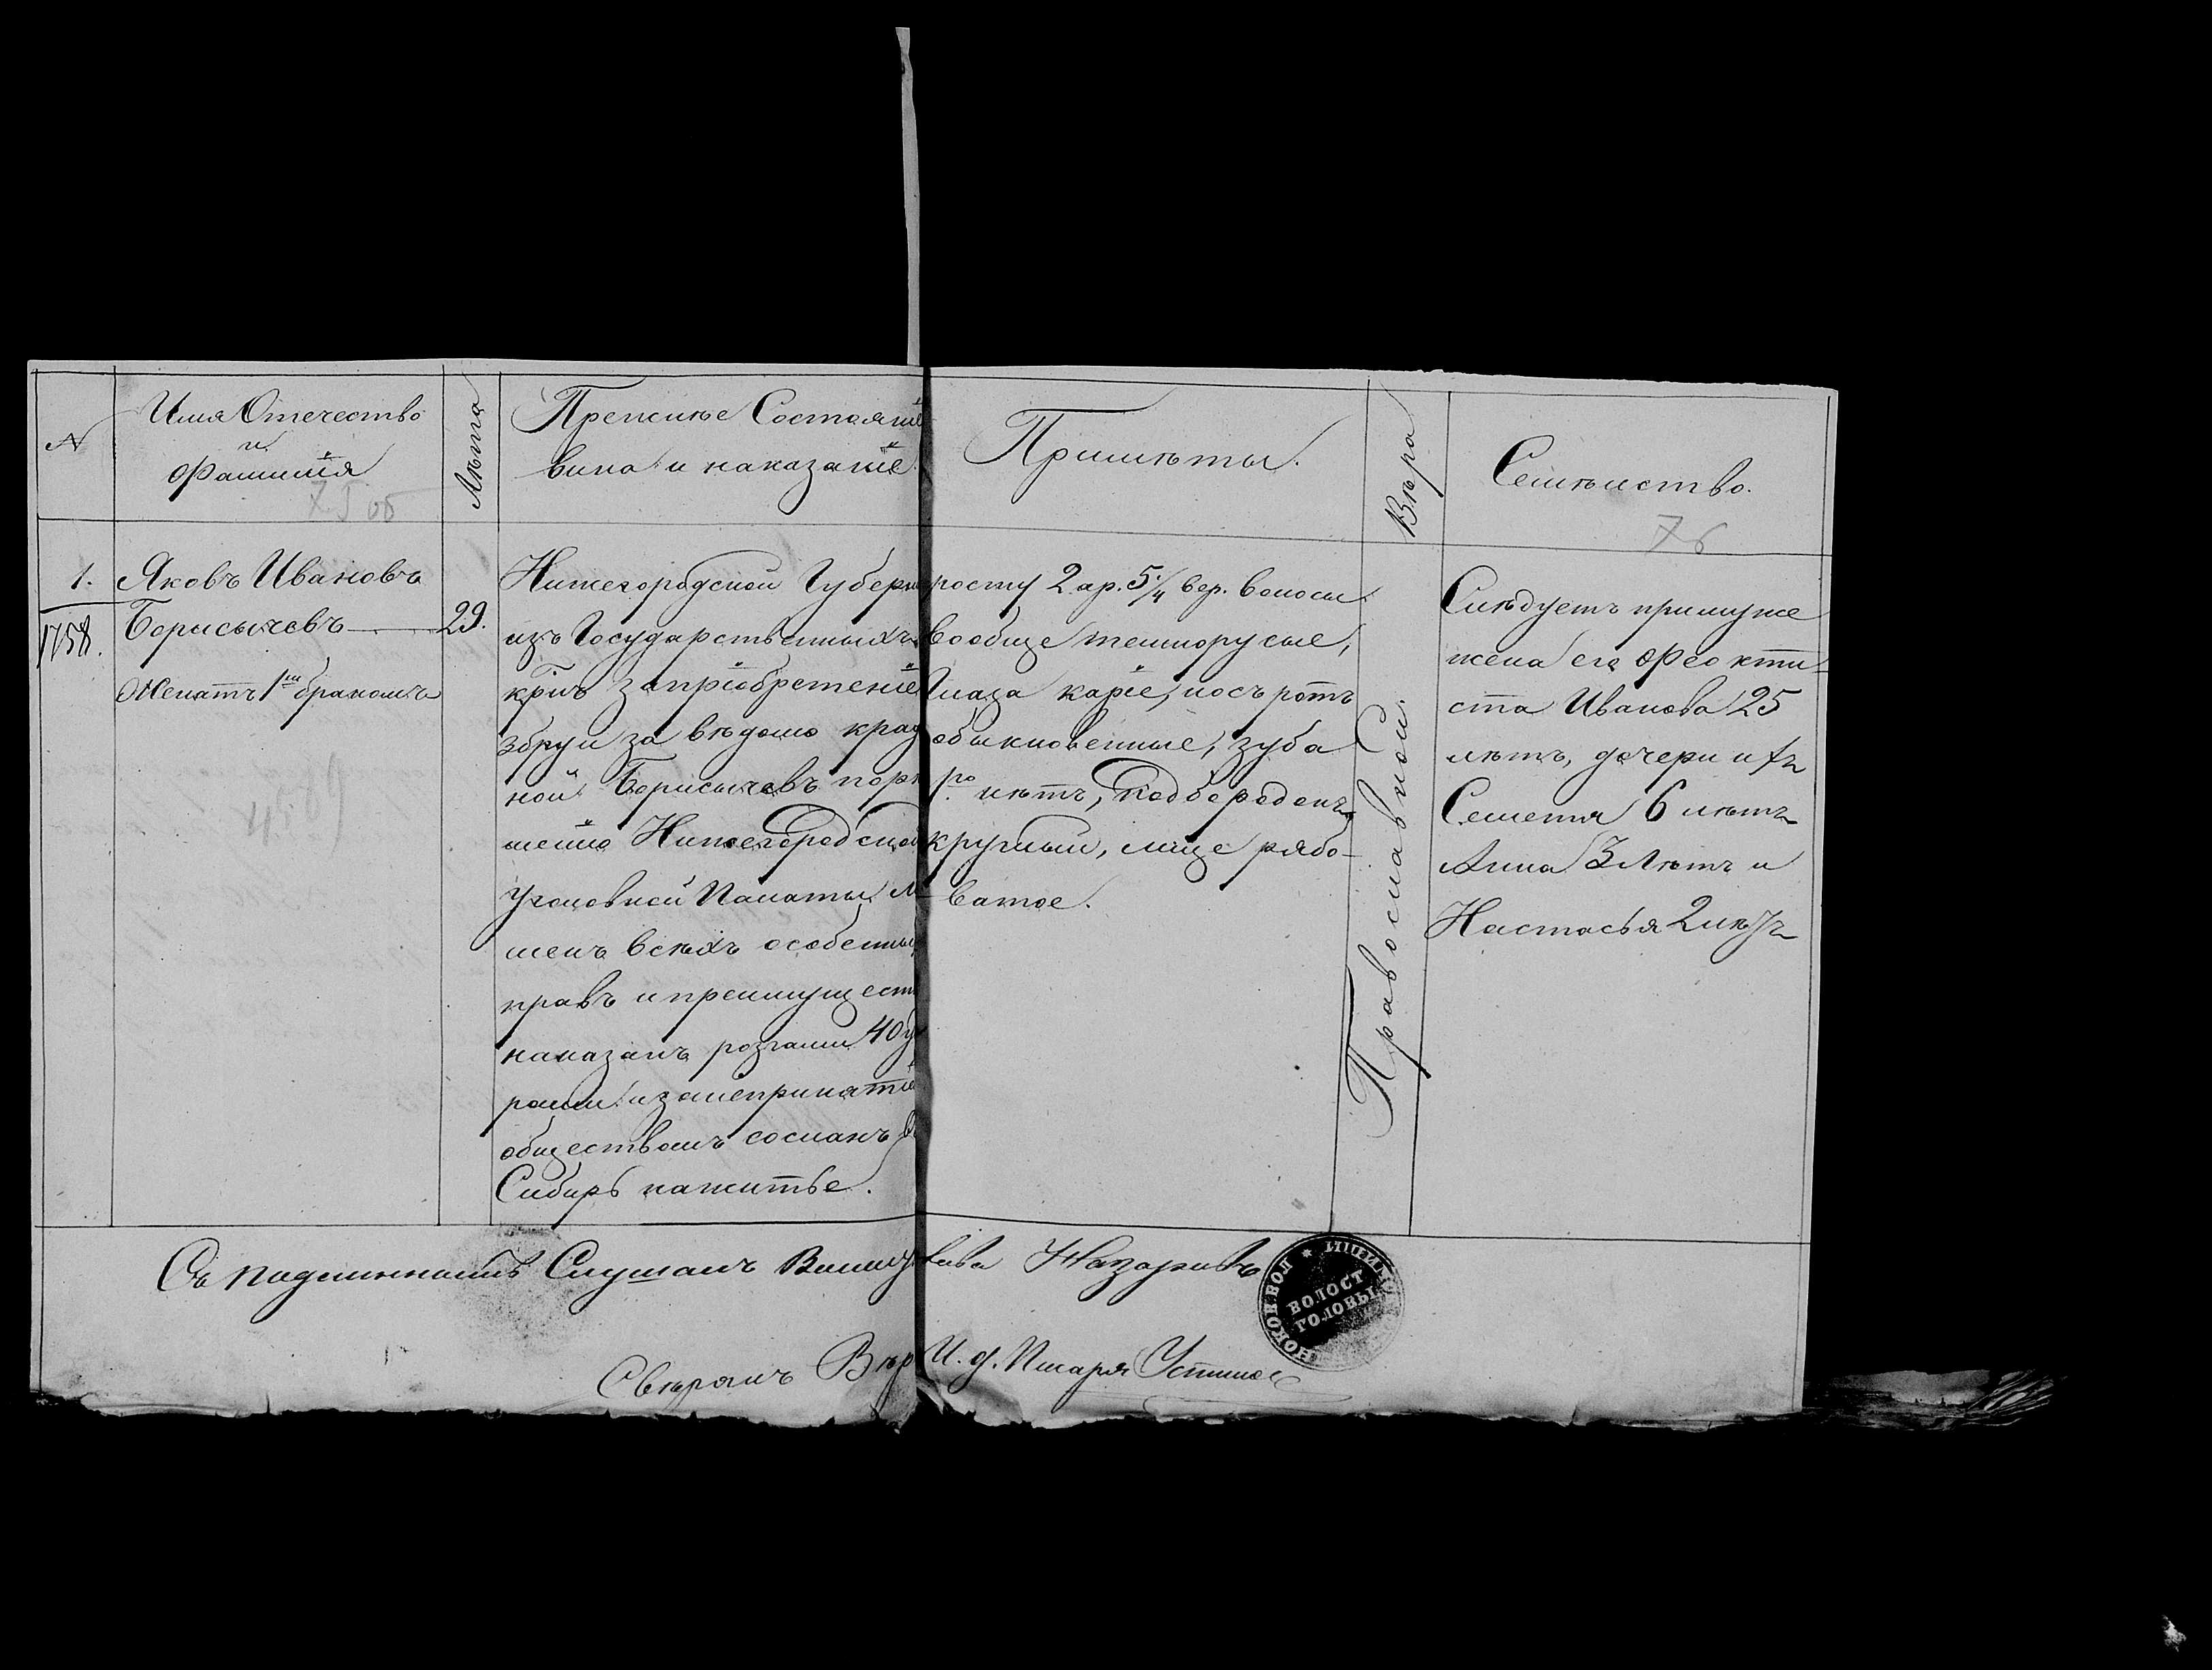 N
Имя Отечество
и
Фамилія
Лѣта
Прежнѣе Состояніе
вина и наказаніе
Примѣты.
Вѣра
Семѣйство.
76
1.
1758.
Яковъ Ивановъ
Борисычевъ 29.
Женатъ 1мъ бракомъ
Нижегородской Губерн
изъ Государственныхъ
крнъ запріобретеніе
збруи за вѣдомо крад
ной Борисычевъ пор
шенію Нижегородской
Уголовной Палаты л
шенъ всѣхъ особенны
правъ и преимуществ
наказанъ розгами 40 у
рами и занепринятіе
обществомъ сосланъ въ
Сибирь нажитье.
росту 2 ар. 5 1/4 вер. волосы
вообще темнорусые,
Глаза каріе, носъ ротъ
обыкновенные, зуба
1го нѣтъ, подбородокъ
круглый, лице рябо-
ватое.
Православной
Слѣдуетъ примуже
жена его Феокти
ста Иванова 25
лѣтъ, дочери ихъ
Семетя 6 лѣтъ
Анна 3 Лѣтъ и
Настасья 2 лѣтъ
Съ подлиннымъ Слушалъ
Назаровъ
Свѣрялъ
И. д. Писаря Устинов
ВОЛОСТ
ГОЛОВЫ